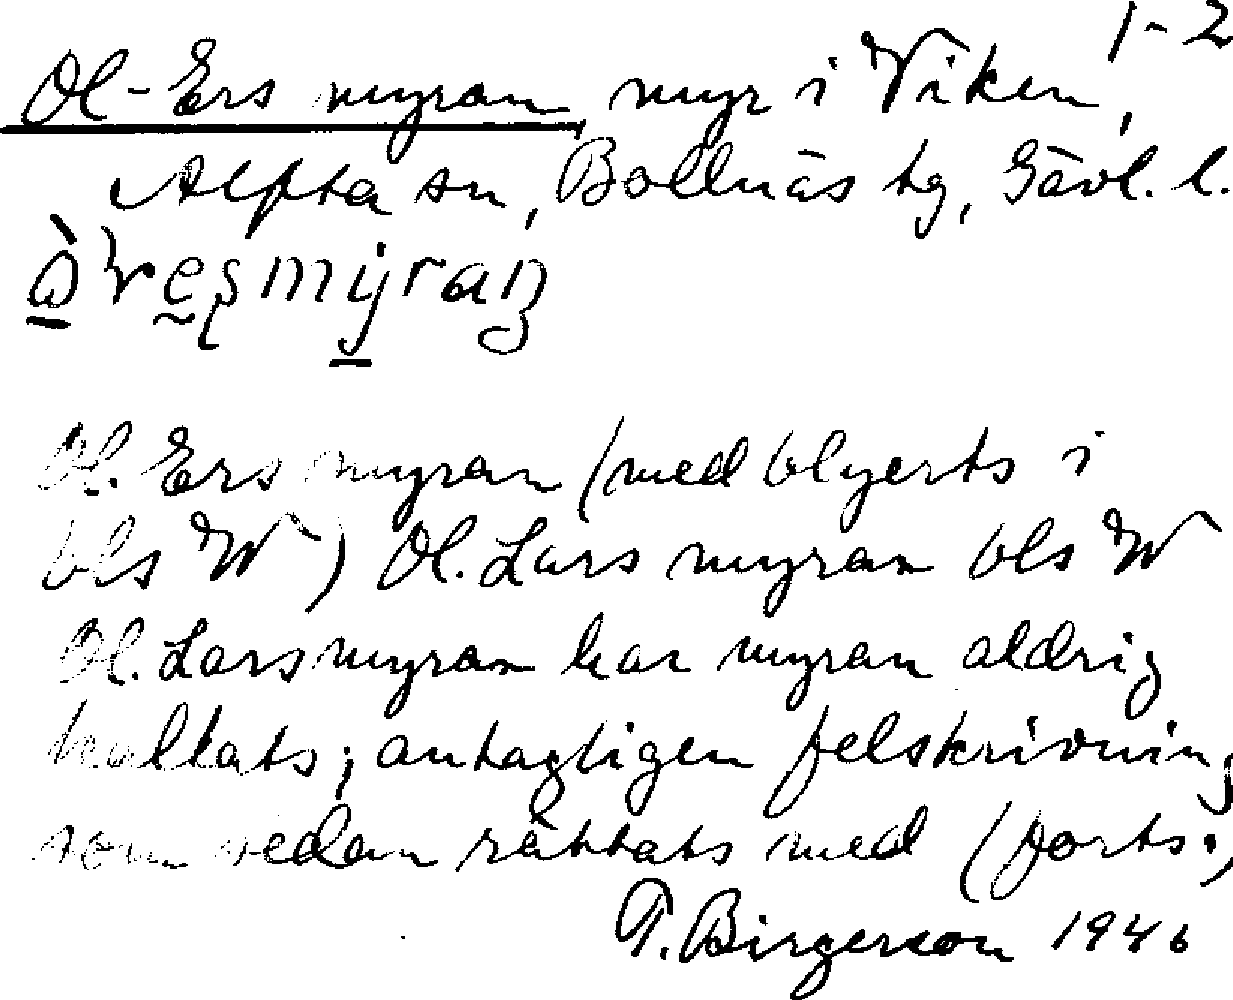 1-2
Ol-Ers myran, myr i Viken,
Alfta sn, Bollnäs tg, Gävl. l.
Ol. Ers myran (med blyerts i
bls W) Ol. Lars myran bls W
Ol. Larsmyran har myran aldrig
kallats; antagligen felskrivning
som sedan rättats med (forts.,
T. Birgerson 1946